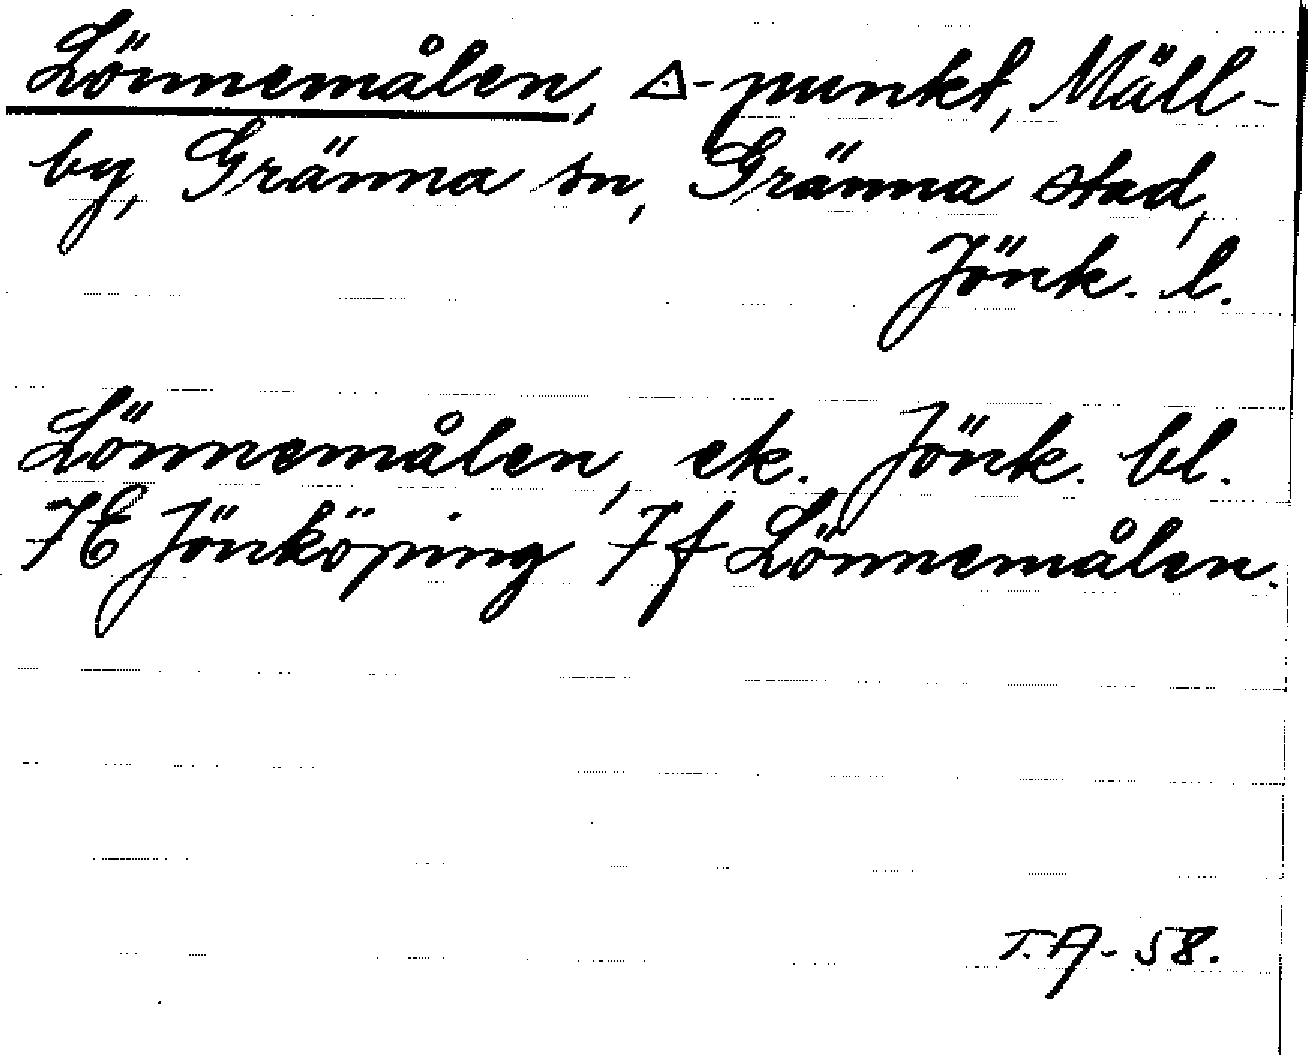 Lönnemålen, △-punkt, Mäll-
by, Gränna sn, Gränna stad,
Jönk. l.
Lönnemålen, ek. Jönk. bl.
7E Jönköping 7f Lönnemålen.
T.A-58.